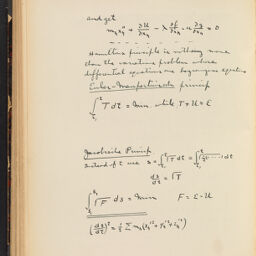 and get
m₁ x₁'' + ∂U/∂x₁ - λ ∂f/∂x₁ - μ ∂g/∂x₁ = 0
Hamiltons principle is nothing more
than the variations problem whose
differential equations are Lagranges equations
Euler-Maupertuis's princip
∫ T dt = Min. while T + U = E
Jacobische Princip
Instead of t use s = ∫ √T dt = ∫ √ dt
ds/dt = √T
∫ √F ds = Min F = E - U
(ds/dt)² = ½ Σ m₁(x₁'² + y₁'² + z₁'²)